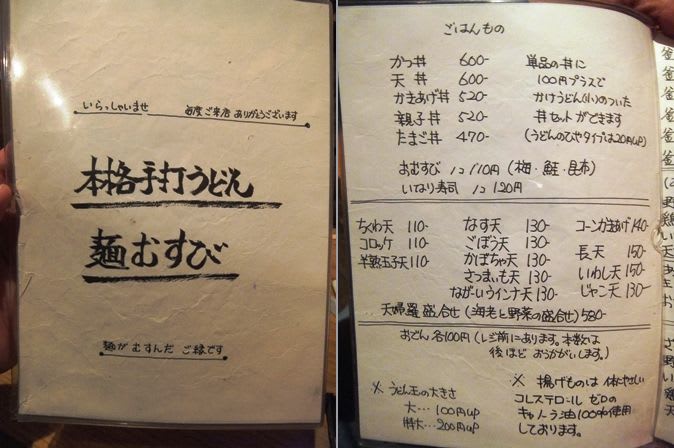 いらっしゃいませ 毎度ご来店ありがとうございます
本格手打うどん
麺むすび
麺がむすんだ ご縁です
ごはんもの
かつ丼 600-
天丼 600-
かきあげ丼 520-
親子丼 520-
たまご丼 470-
単品の丼に
100円プラスで
かけうどん(小)のついた
丼セットができます
(うどんのひやタイプは20円UP)
おむすび 1コ110円 (梅・鮭・昆布)
いなり寿司 1コ120円
ちくわ天 110-
コロッケ 110-
半熟玉子天 110-
なす天 130-
ごぼう天 130-
かぼちゃ天 130-
さつまいも天 130-
ながーいウインナ天 130-
コーンかき揚げ 140-
長天 150-
いわし天 150-
じゃこ天 130-
天婦羅盛合せ (海老と野菜の盛合せ) 580-
おでん各100円 (レジ前にあります。本数は
後ほどおうかがいします)
※ うどん玉の大きさ
大…100円up
特大…200円up
※ 揚げものは 体にやさしい
コレステロール ゼロの
キャノーラ油100%使用
しております。